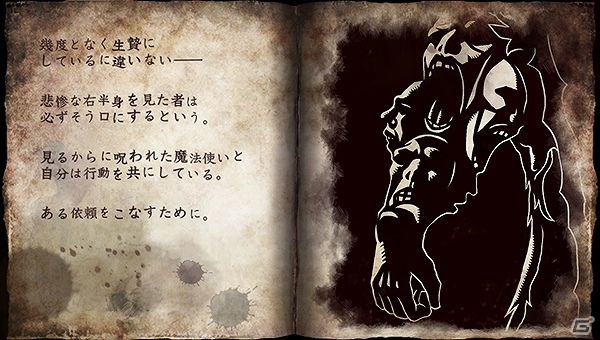 幾度となく生贄に
しているに違いない――
悲惨な右半身を見た者は
必ずそう口にするという。
見るからに呪われた魔法使いと
自分は行動を共にしている。
ある依頼をこなすために。